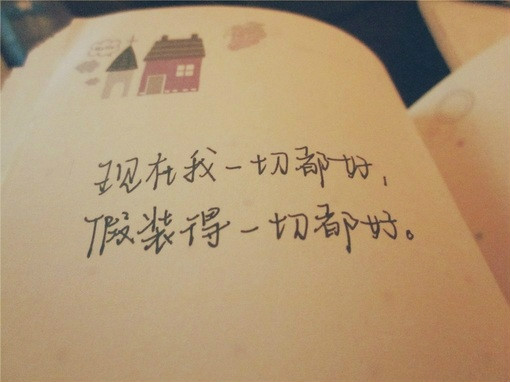 现在我一切都好,
假装得一切都好。